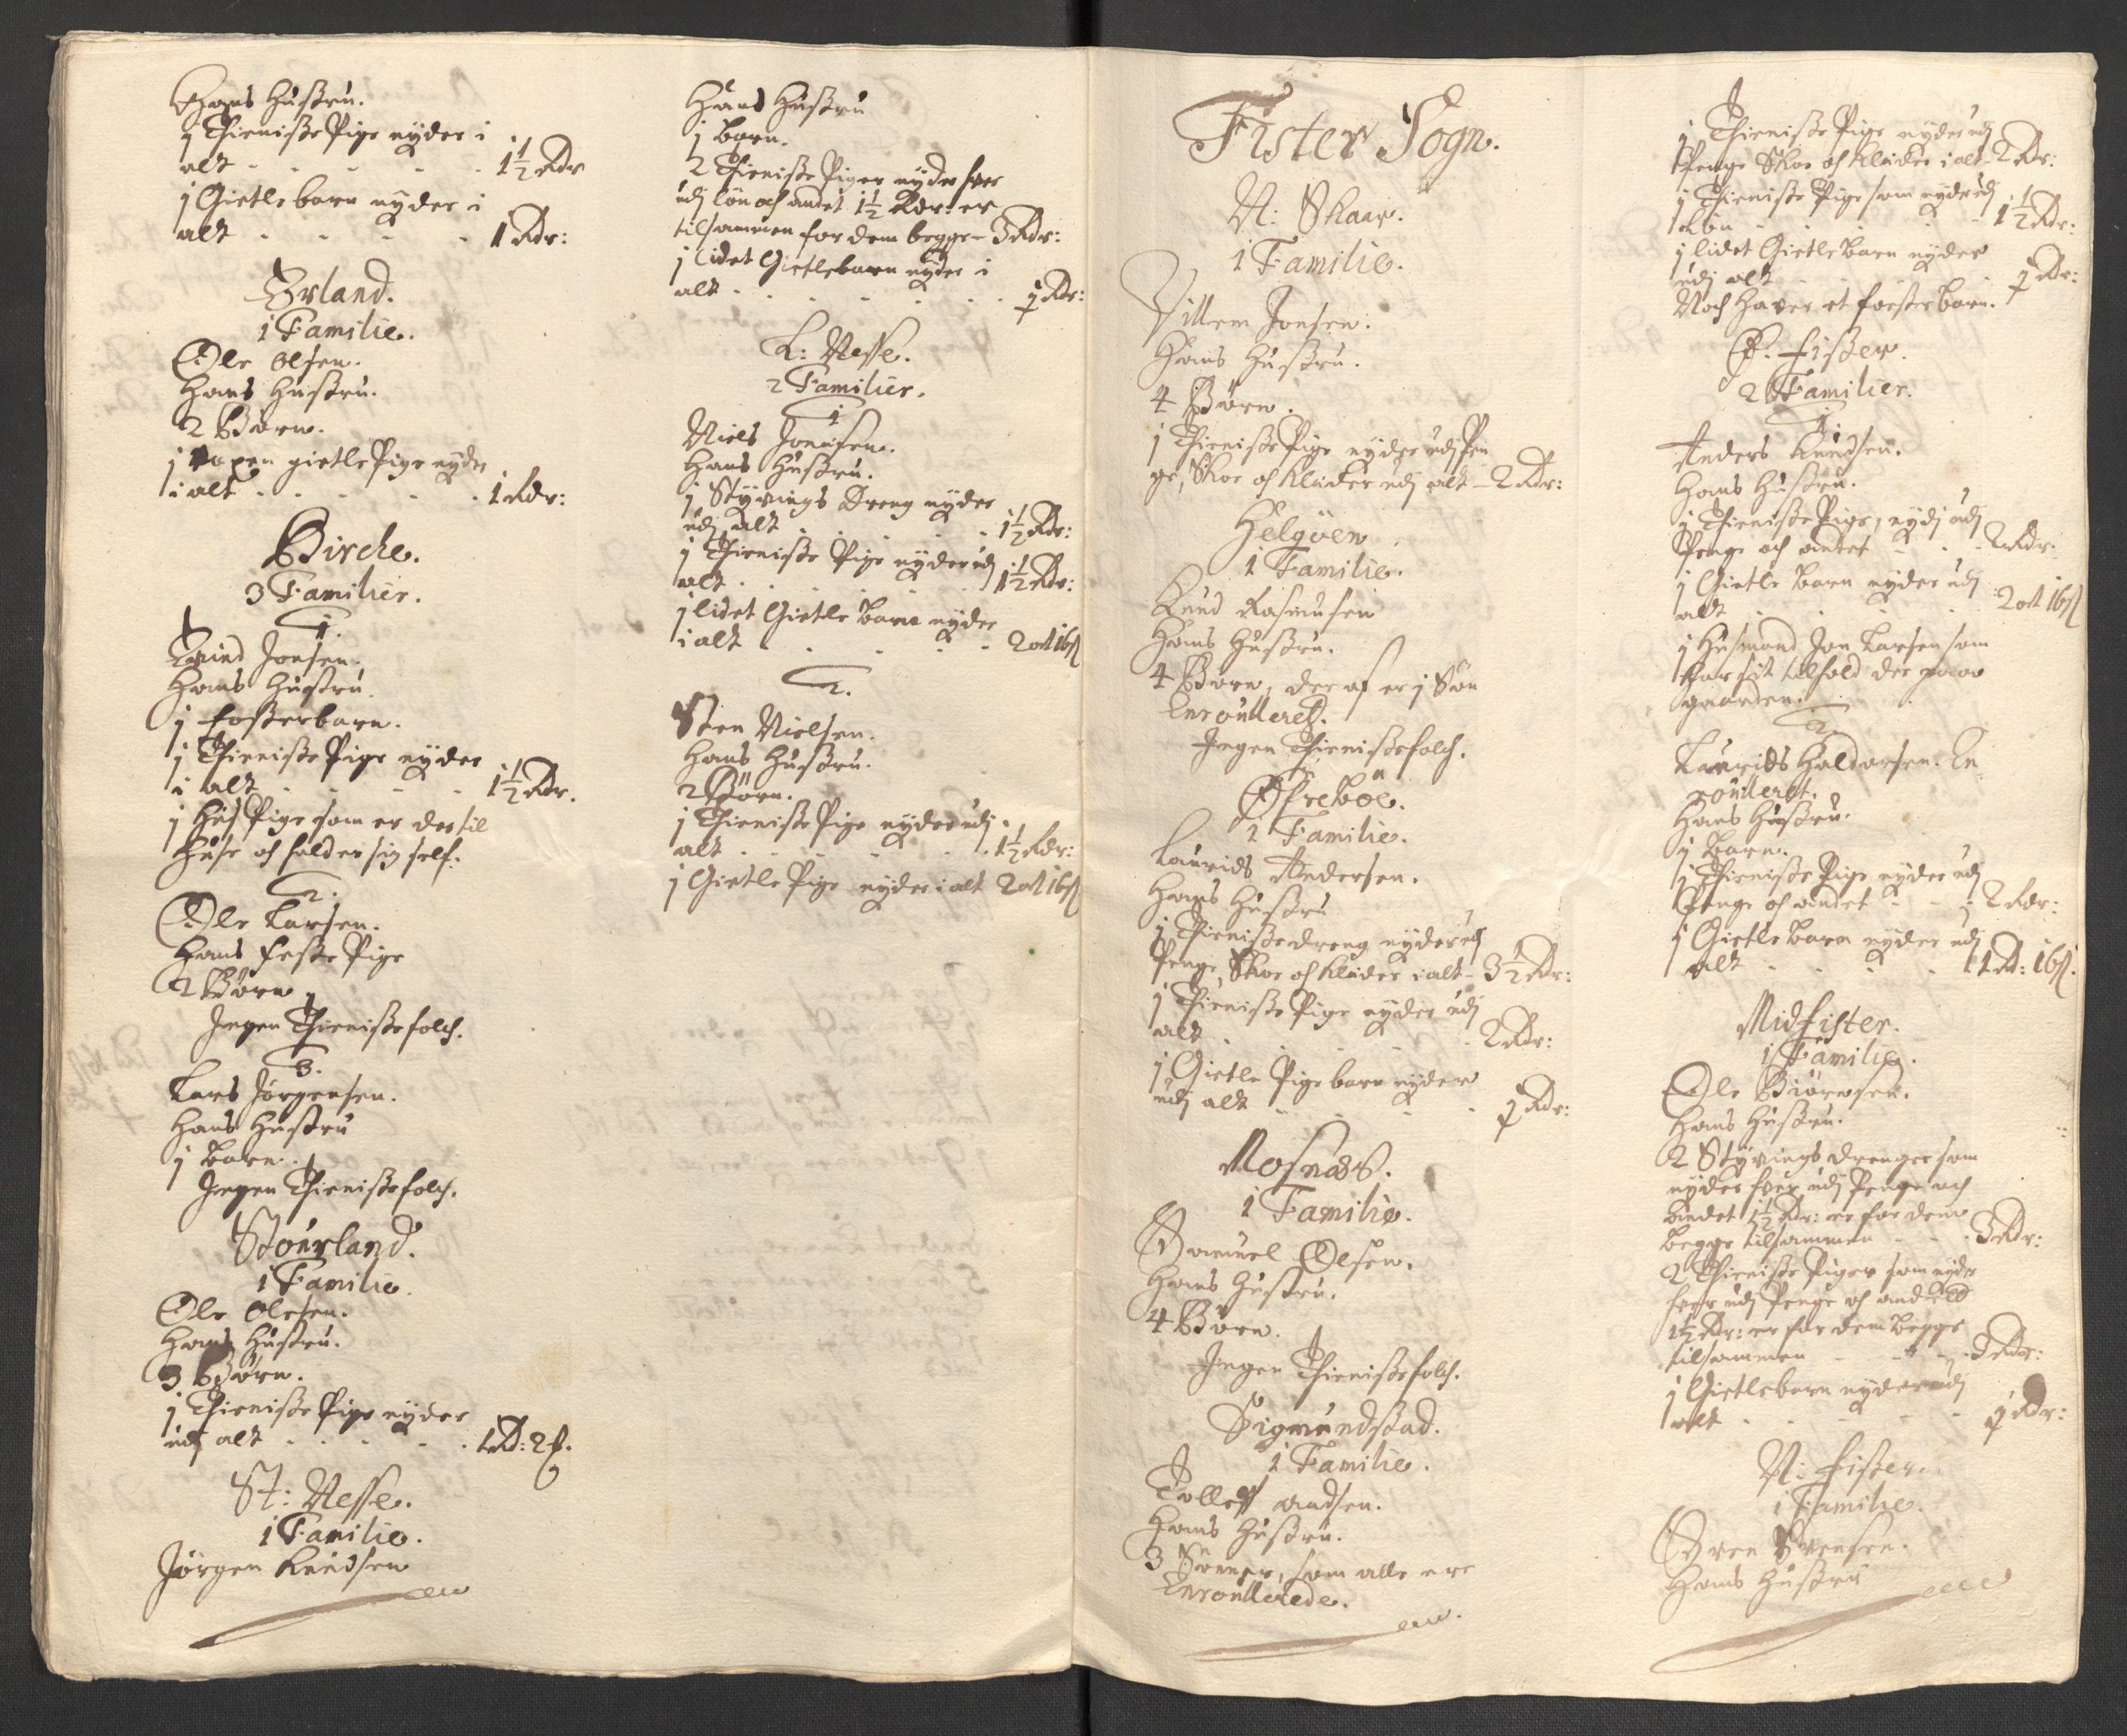 Hans Hustru.
j Thieniste Pige nyder i
alt - - - - - 1½ Rdr
j Gietle barn nyder i
alt - - - - 1 Rdr:
Erland.
1 Familie.
Ole Olsen.
Hans Hustru.
2 Børn.
j voxen gietle Pige nyder
i alt - - - - - 1 Rdr:
Birche.
3 Familier.
1.
Evind Jonsen.
Hans Hustru.
j fosterbarn.
j Thieniste Pige nyder
i alt - - - - 1½ Rdr.
j Huus Pige som er der til
Huse och holder sig self.
2.
Ole Larsen.
Hans feste Pige
2 Børn
Ingen Thienistefolch.
3.
Lars Jørgensen.
Hans Hustru
j barn.
Ingen Thienistefolch.
Stourland.
1 Familie.
Ole Olesen.
Hans Hustru.
3 Børn.
j Thieniste Pige nyder
udj alt - - - - - 1 Rd: 2
St: Nesse.
1 Familie.
Jørgen Knudsen
Hans Hustru
j barn.
2 Thieniste Piger nyder hver
udj løn och andet 1½ Rdr: er
tilsammen for dem begge - 3 Rdr:
j lidet Gietlebarn nyder i
alt - - - - - - j Rdr:
L: Nesse.
2 Familier.
1
Niels Jonsen.
Hans Hustru.
j Styvings Dreng nyder
udj alt - - - - 1½ Rdr:
j Thieniste Pige nyder udj
alt - - - - - 1½ Rdr:
j lidet Gietle barn nyder
i alt - - - - - 2 ort 16 s
2.
Sten Nielsen.
Hans Hustru.
2 Børn.
j Thieniste Pige nyder udj
alt - - - - - - 1½ Rdr:
j Gietle Pige nyder i alt 2 ort 16 s
Fister Sogn.
N: Skaar.
1 Familie.
Villem Jonsen.
Hans Hustru.
4 Børn.
j Thieniste Pige nyder udj Pen
ge, Skoe och Klæder udj alt - 2 Rdr:
Helgøen
1 Familie.
Knud Rasmusen
Hans Hustru.
4 Børn, der af er j Søn
Enroulleret.
Ingen Thienistefolch.
Øfrebøe.
1 Familie.
Laurids Andersen.
Hans Hustru
j Thienistedreng nyder udj
Penge, Skoe och Klæder i alt - 3½ Rdr:
j Thieniste Pige nyder udj
alt - - - - - 2 Rdr:
j Gietle Pige barn nyder
udj alt - - - - j Rdr:
Mosnæs.
1 Familie.
Samuel Olsen.
Hans Hustru.
4 Børn.
Ingen Thienistefolch.
Sigmundstad.
1 Familie.
Tolleff
Hans Hustru.
3 Sønner, som alle ere
Enroullerede.
j Thieniste Pige nyder udj
Penge Skoe och Klæder i alt - 2 Rdr:
j Thieniste Pige som nyder udj
Løn - - - - - 1½ Rdr:
j lidet Gietle barn nyder
udj alt - - - - j Rdr:
Noch haver et fosterbarn.
Ø. Fister.
2 Familier.
1.
Anders Knudsen.
Hans Hustru.
j Thieniste Pige, nyder udj
Penge och andet - - - 2 Rdr.
j Gietle barn nyder udj
alt - - - - - 2 ort 16 s
j Husmand Jon Larsen som
har sit tilhold der paa
gaarden.
2
Laurids Haldorsen. En
roulleret.
Hans Hustru.
j Barn.
j Thieniste Pige nyder udj
Penge och andet - - - 2 Rdr:
j Gietle barn nyder udj
alt - - - - 1 Rd: 16 s.
Midfister.
1 Familie.
Ole Biørnsen.
Hans Hustru.
2 Styvings drenger som
nyder hver udj Penge och
andet 1½ Rdr: er for dem
begge tilsammen - - - 3 Rdr:
2 Thieniste Piger som nyder
hver udj Penge och andet
1½ Rdr: er for dem begge
tilsammen - - - 3 Rdr:
j Gietlebarn nyder udj
alt - - - - - j Rdr:
N: Fister.
1 Familie.
Sven Svensen.
Hans Hustru